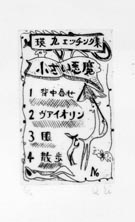 瑛九エッチング集
小さい悪魔
1 背中合せ
2 ヴァイオリン
3
4 散歩